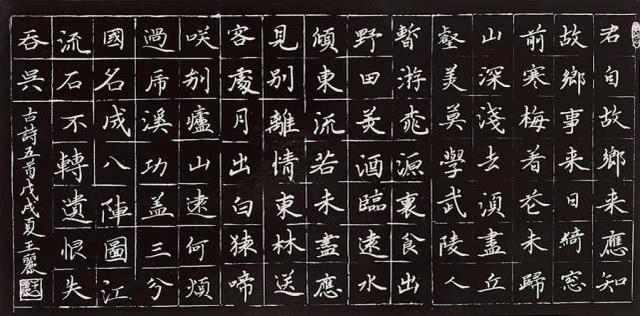 君自故鄉来應知
故鄉事来日綺窓
前寒梅著花未歸
山深淺去須盡丘
壑美莫學武陵人
暫游桃源裏食出
野田美酒臨遠水
傾東流若未盡應
見別離情東林送
客處月出白猿啼
咲別廬山遠何煩
過虎溪功盖三分
國名成八陣圖江
流石不轉遺恨失
吞吳
古詩五首戊戌夏王麗